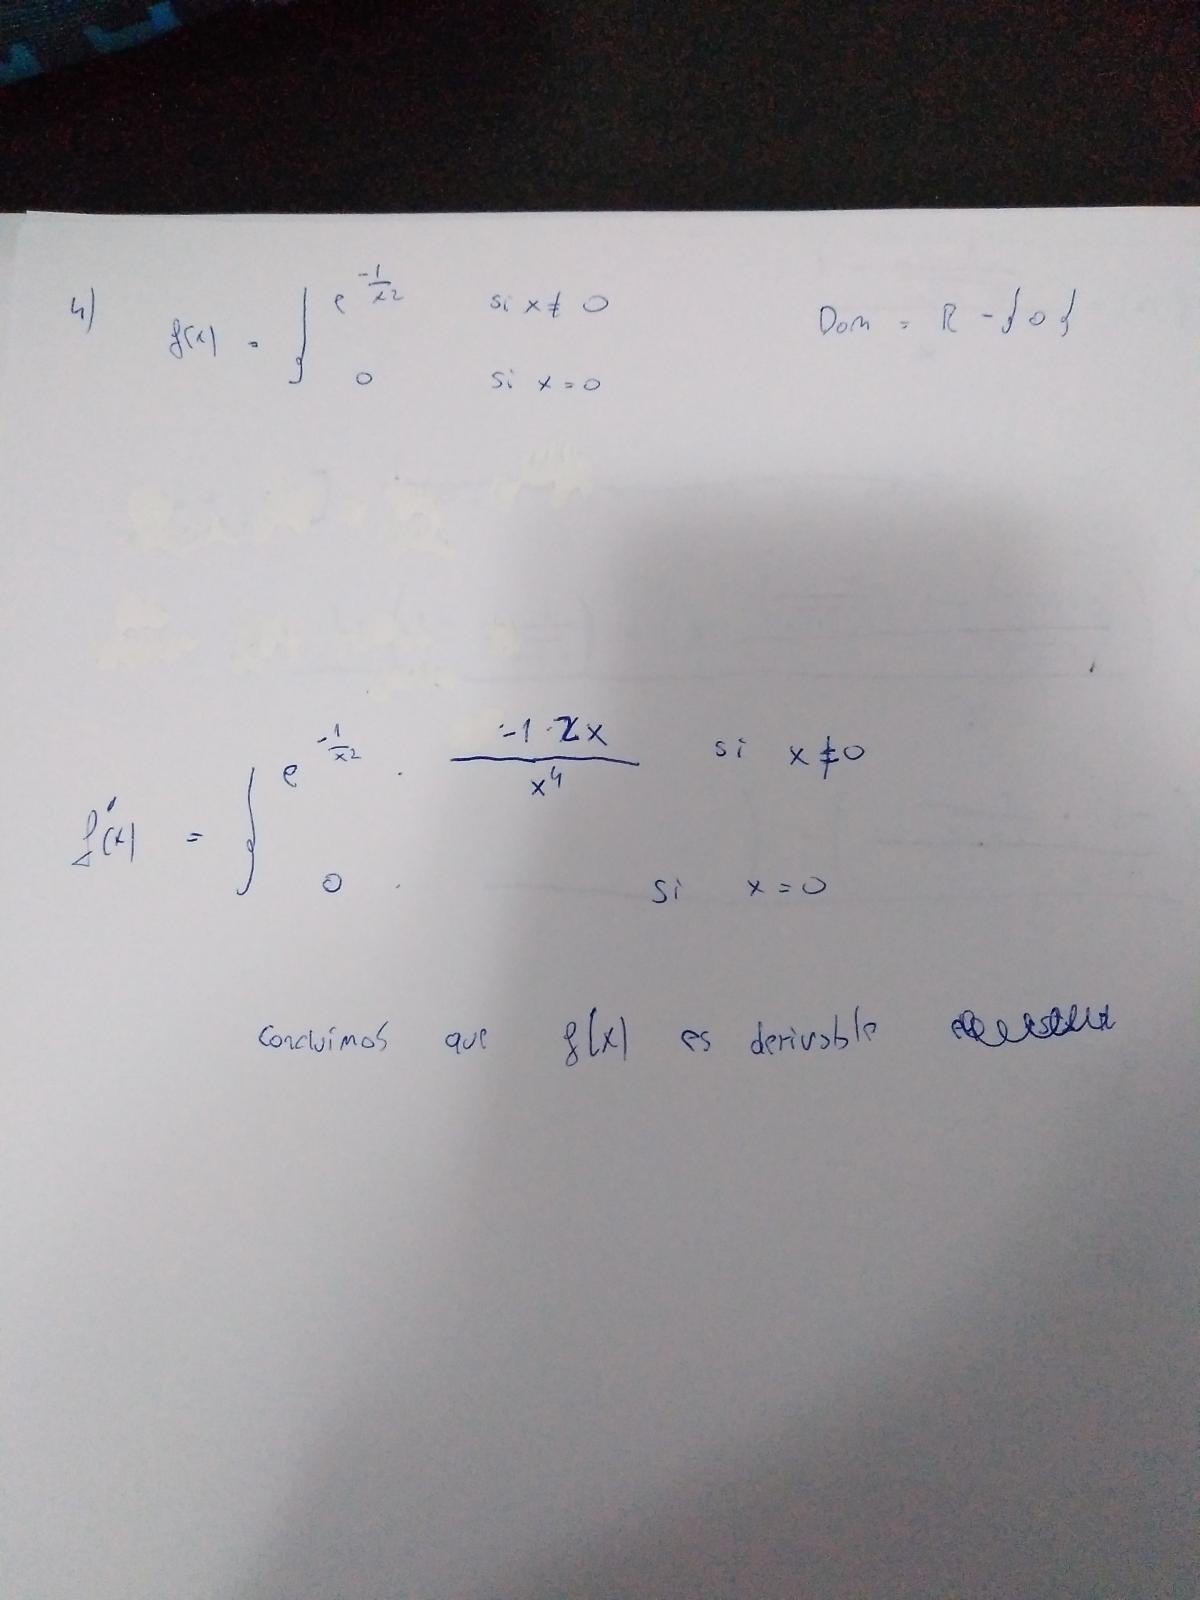 4) f(x) = { e^(-1/x2) si x ≠ 0 Dom = R - {0}
0 si x = 0
f'(x) = { e^(-1/x2) · (-1·2x)/(x4) si x ≠ 0
0 · si x = 0
Concluimos que f(x) es derivable